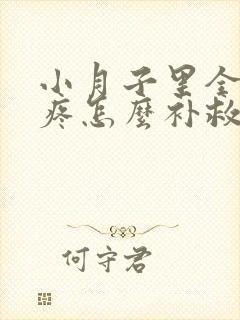 小月子里全
疼怎麼补救
何守君